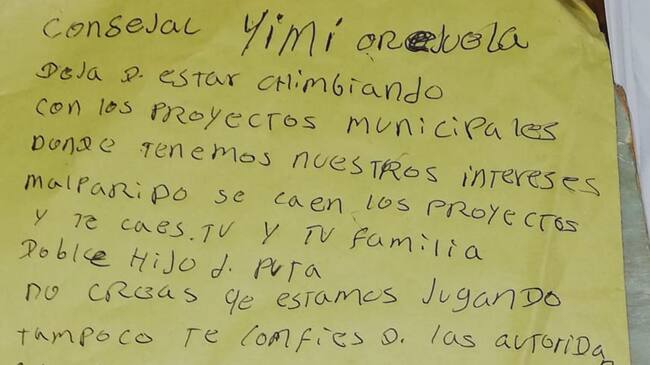 CONSEJAL YIMI OREJUELA
DEJA D. ESTAR CHIMBIANDO
CON LOS PROYECTOS MUNICIPALES
DONDE TENEMOS NUESTROS INTERESES
MALPARIDO SE CAEN LOS PROYECTOS
Y TE CAES. TU Y TU FAMILIA
DOBLE HIJO d. PUTA
NO CREAS QE ESTAMOS JUGANDO
TAMPOCO TE COMFIES D. LAS AUTORIDA